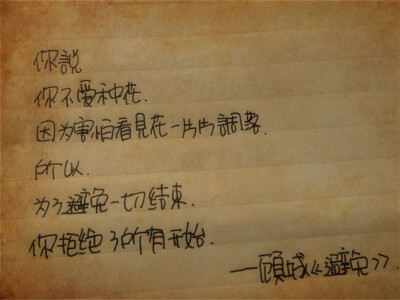 你說
你不愛种花.
因为害怕看見花一片片調落.
所以.
为了避免一切结束.
你拒绝了所有开始.
——顾城《避免》.